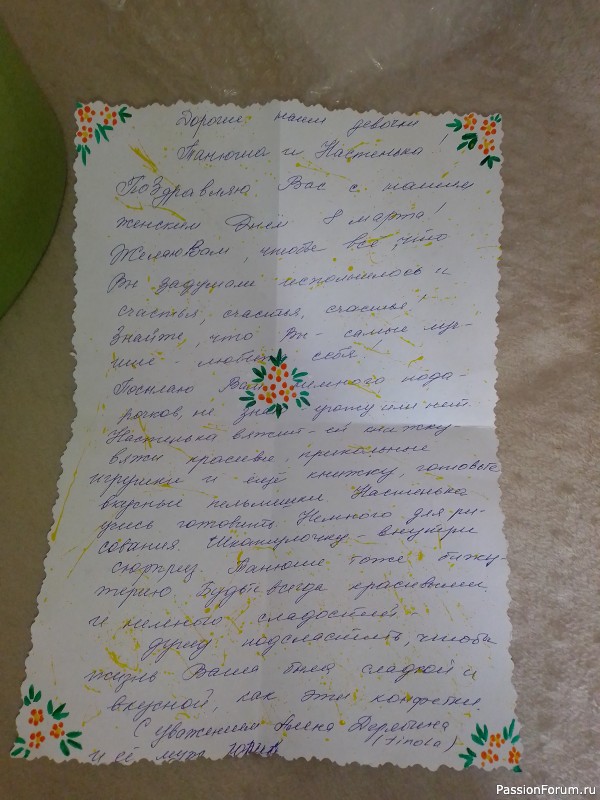 Дорогие наши девочки
Танюша и Настенька!
Поздравляю Вас с нашим
женским Днём 8 марта!
Желаю Вам, чтобы всё, что
Вы задумали исполнилось и
счастья, счастья, счастья!
Знайте, что Вы - самые лу-
чшие - любите себя!
Посылаю Вам немного пода-
рочков, не знаю угожу или нет.
Настенька вяжит - ей книжку
вяжи красивые, прикольные
игрушки и ещё книжку, готовьте
вкусные пельмешки. Настенька
учись готовить. Немного для ри-
сования. Шкатулочку - внутри
сюрприз. Танюше тоже бижу-
терию. Будьте всегда красивыми
и немного сладостей -
душу подсластить, чтобы
жизнь Ваша была сладкой и
вкусной, как эти конфетки.
С уважением Алена Дерябина
(Finola)
и её муж
PassionForum.ru